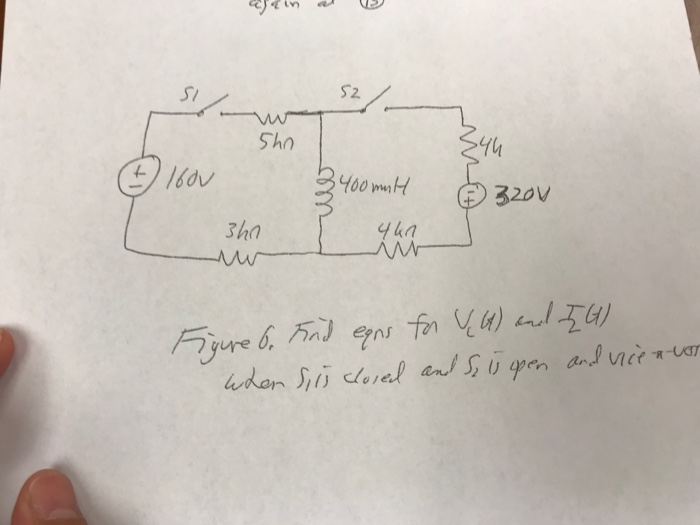 again at 13
S1
S2
5kΩ
4k
160V
400 mH
320V
3kΩ
4kΩ
Figure 6. Find eqns for VL(t) and IL(t)
when S1 is closed and S2 is open and vice-a-ver